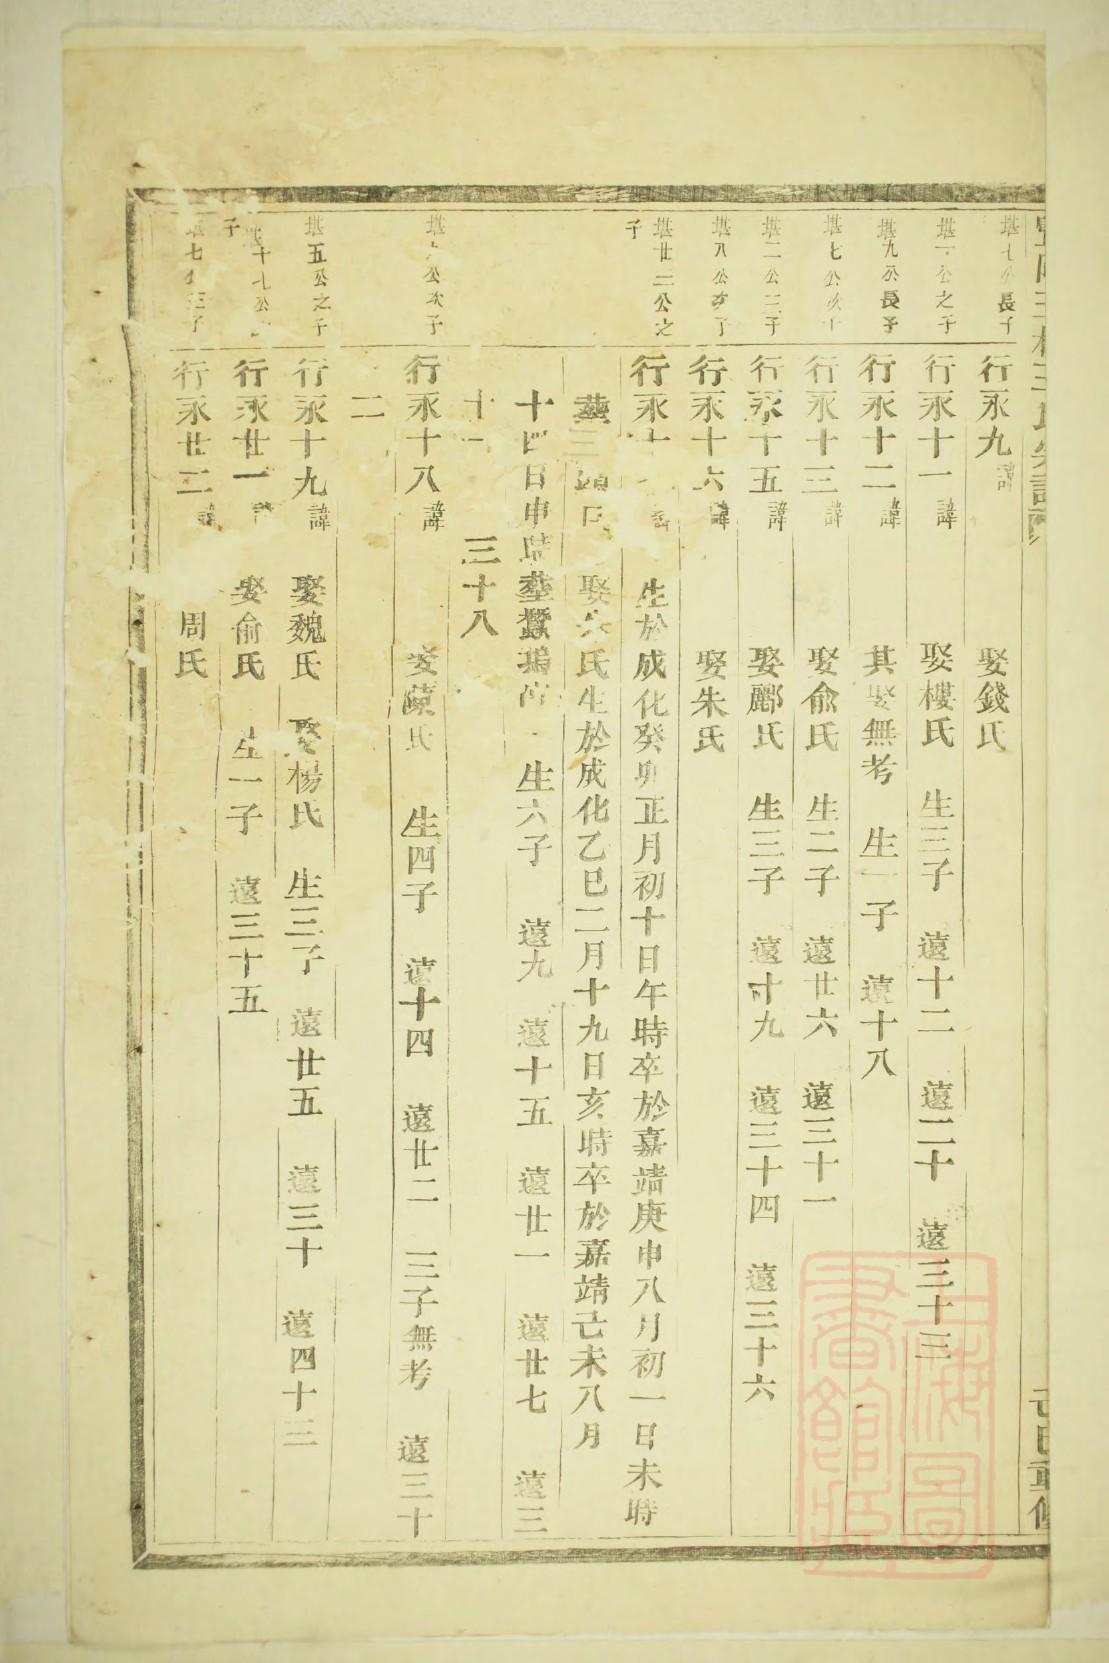 堪七公長子
行永九諱
娶錢氏
堪一公之子
行永十一諱
娶樓氏 生三子 遠十二 遠二十 遠三十三
堪九公長子
行永十二諱
其娶無考 生一子 遠十八
堪七公次子
行永十三諱
娶俞氏 生二子 遠廿六 遠三十一
堪二公三子
行永十五諱
娶酈氏 生三子 遠十九 遠三十四 遠三十六
堪八公次子
行永十六諱
娶朱氏
堪廿二公之子
行永十 諱
生於成化癸卯正月初十日午時卒於嘉靖庚申八月初一日未時
葬三 娶 氏生於成化乙巳二月十九日亥時卒於嘉靖己未八月
十四日申時 生六子 遠九 遠十五 遠廿一 遠廿七 遠三
十一 三十八
堪 公次子
行永十八諱
娶 氏 生四子 遠十四 遠廿二 三子無考 遠三十
二
堪五公之子
行永十九諱
娶魏氏 娶楊氏 生三子 遠廿五 遠三十 遠四十三
堪十七公 子
行永廿一諱
娶俞氏 生一子 遠三十五
堪七公三子
行永廿二諱
周氏
上海圖書館藏